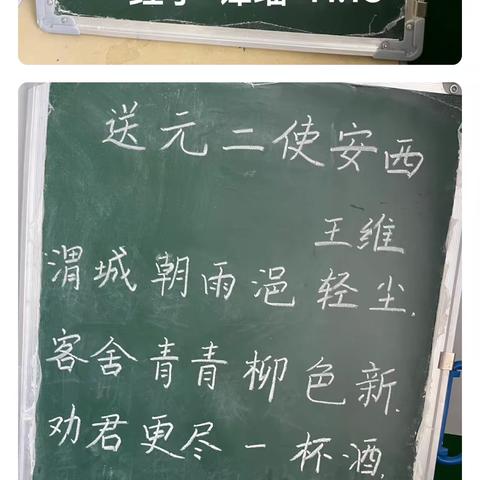 送元二使安西
王维
渭城朝雨浥轻尘.
客舍青青柳色新.
劝君更尽一杯酒.